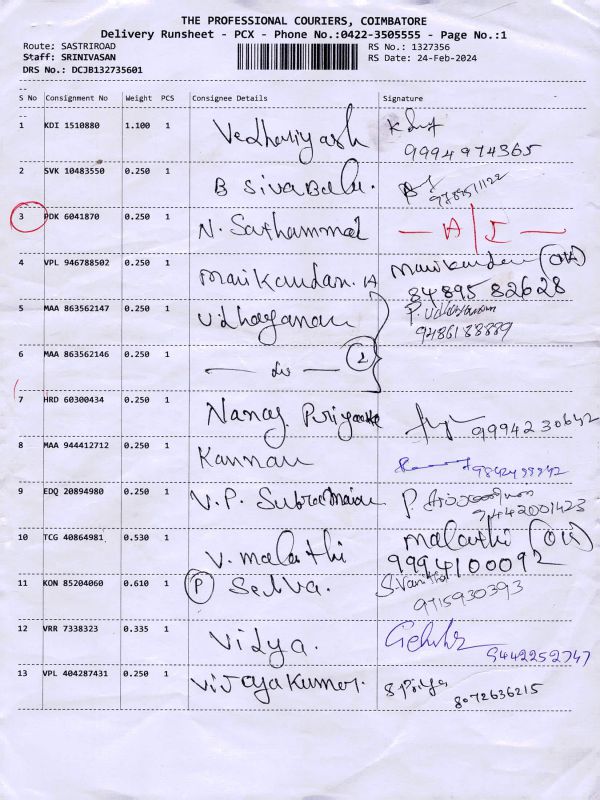 THE PROFESSIONAL COURIERS, COIMBATORE
Delivery Runsheet - PCX - Phone No.:0422-3505555 - Page No.:1
Route: SASTRIROAD RS No.: 1327356
Staff: SRINIVASAN RS Date: 24-Feb-2024
DRS No.: DCJB132735601
S No Consignment No Weight PCS Consignee Details Signature
1 KDI 1510880 1.100 1 Vedhaliyash
9994974365
2 SVK 10483550 0.250 1 B SivaBalu.
3 PDK 6041870 0.250 1 N. Sathammal
4 VPL 946788502 0.250 1 Manikandan. A Manikandan
84895 82628
5 MAA 863562147 0.250 1 Udhayanan
9486188889
6 MAA 863562146 0.250 1 — do — 2
7 HRD 60300434 0.250 1 Priyanka 9994230642
8 MAA 944412712 0.250 1 Kannan
9 EDQ 20894980 0.250 1 V.P. Subramaian P.
9442001423
10 TCG 40864981 0.530 1 V. malathi malathi
9994100092
11 KON 85204060 0.610 1 P Selva. S. Vanitha
9715930393
12 VRR 7338323 0.335 1 Vidya.
9442252747
13 VPL 404287431 0.250 1 Vijayakumar. S Priya 8072636215